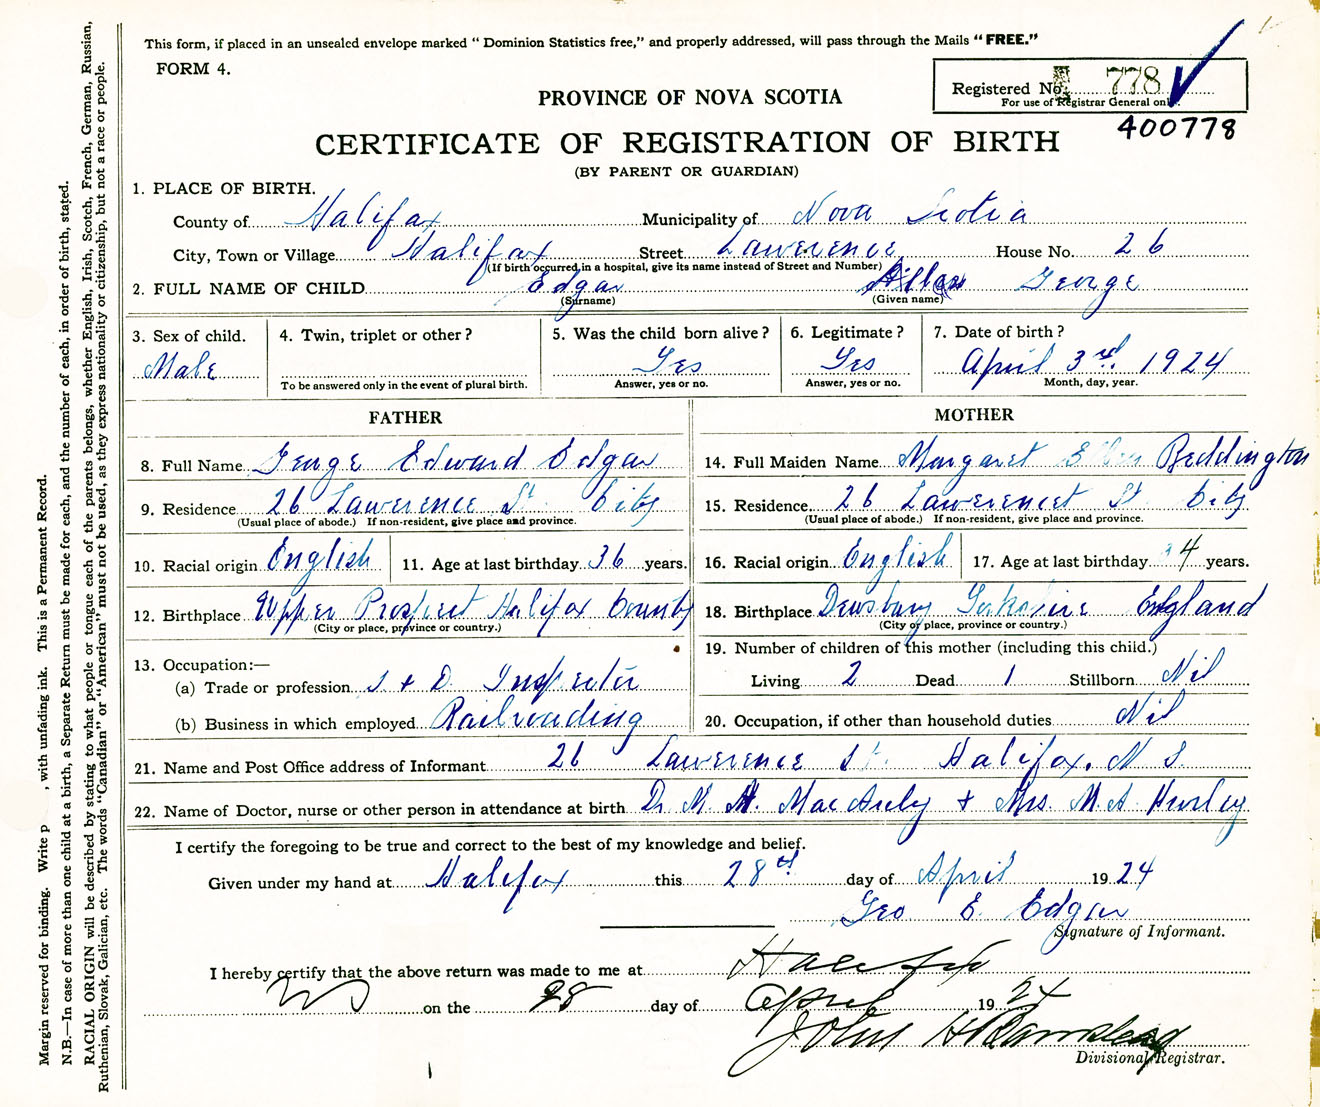 This form, if placed in an unsealed envelope marked "Dominion Statistics free," and properly addressed, will pass through the Mails "FREE."
FORM 4.
Registered No. 778
For use of Registrar General only
400778
PROVINCE OF NOVA SCOTIA
CERTIFICATE OF REGISTRATION OF BIRTH
(BY PARENT OR GUARDIAN)
1. PLACE OF BIRTH.
County of Halifax Municipality of Nova Scotia
City, Town or Village Halifax Street Lawerence House No. 26
(If birth occurred in a hospital, give its name instead of Street and Number)
2. FULL NAME OF CHILD Edgar George
(Surname) (Given name)
3. Sex of child. 4. Twin, triplet or other? 5. Was the child born alive? 6. Legitimate? 7. Date of birth?
Male Yes Yes April 3rd. 1924
To be answered only in the event of plural birth. Answer, yes or no. Answer, yes or no. Month, day, year.
FATHER
8. Full Name George Edward Edgar
9. Residence 26 Lawerence St City
(Usual place of abode.) If non-resident, give place and province.
10. Racial origin English 11. Age at last birthday 36 years.
12. Birthplace Upper Prospect Halifax County
(City or place, province or country.)
13. Occupation:—
(a) Trade or profession S + D Inspector
(b) Business in which employed Railroading
MOTHER
14. Full Maiden Name Margaret Ellen Beddington
15. Residence 26 Lawerencet St City
(Usual place of abode.) If non-resident, give place and province.
16. Racial origin English 17. Age at last birthday 4 years.
18. Birthplace Dewsbury England
(City or place, province or country.)
19. Number of children of this mother (including this child.)
Living 2 Dead 1 Stillborn Nil
20. Occupation, if other than household duties Nil
21. Name and Post Office address of Informant 26 Lawerence St. Halifax. N S.
22. Name of Doctor, nurse or other person in attendance at birth Dr M. + Mrs. M A Hurley
I certify the foregoing to be true and correct to the best of my knowledge and belief.
Given under my hand at Halifax this 28th day of April 1924
Geo E. Edgar
Signature of Informant.
I hereby certify that the above return was made to me at Halifax
NS on the 28 day of April 1924
John H
Divisional Registrar.
Margin reserved for binding. Write p , with unfading ink. This is a Permanent Record.
N.B.—In case of more than one child at a birth, a Separate Return must be made for each, and the number of each, in order of birth, stated.
RACIAL ORIGIN will be described by stating to what people or tongue each of the parents belongs, whether English, Irish, Scotch, French, German, Russian,
Ruthenian, Slovak, Galician, etc. The words "Canadian" or "American" must not be used, as they express nationality or citizenship, but not a race or people.